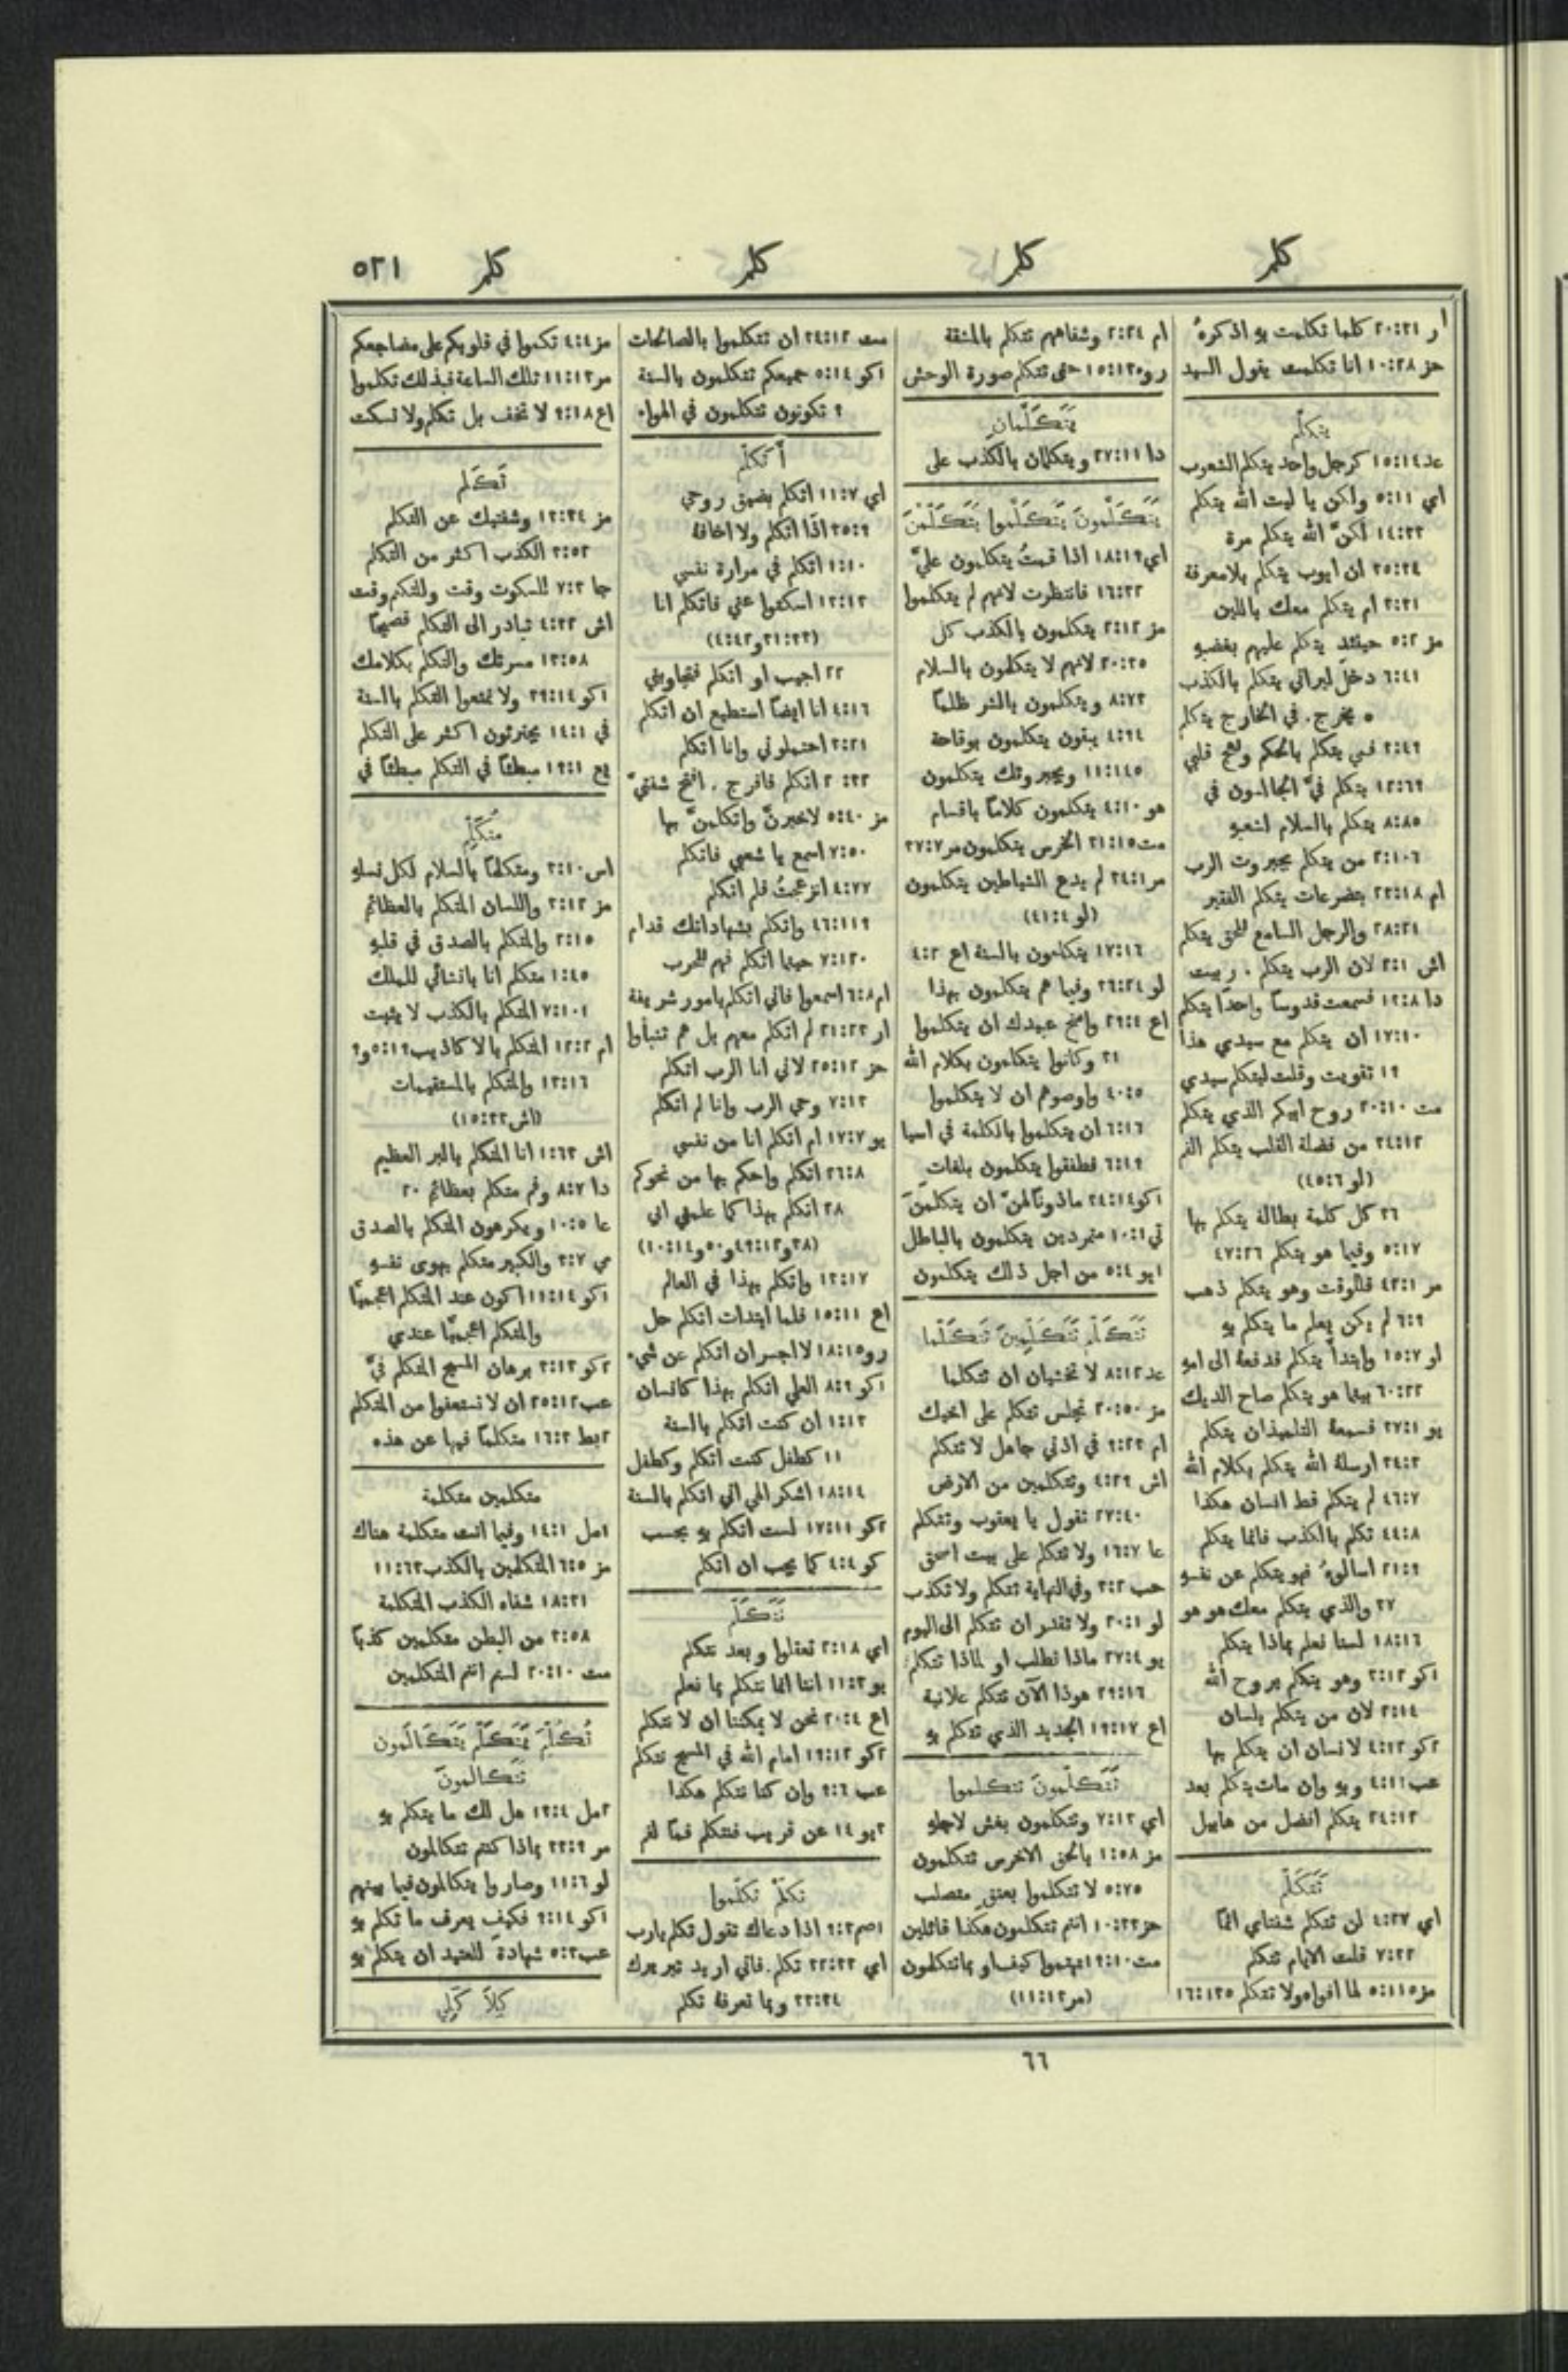 كلم
كلم
كلم
كلم
٥٢١
ار ٢٠:٣١ كلما تكلمت بهِ اذكرهُ
حز ١٠:٢٨ انا تكلمت يقول السيد
يتكلَّم
عد ١٥:١٤ كرجل واحد يتكلم الشعوب
اي ٥:١١ ولكن يا ليت الله يتكلم
١٤:٣٣ لكنّ الله يتكلم مرة
٣٥:٣٤ ان ايوب يتكلم بلا معرفة
٣:٤١ ام يتكلم معك باللين
مز ٥:٢ حينئذٍ يتكلم عليهم بغضبهِ
٦:٤١ دخل ليراني يتكلم بالكذب
٥ يخرج. في الخارج يتكلم
٣:٤٩ فمي يتكلم بالحكم ولهج قلبي
١٢:٦٩ يتكلم فيَّ الجالسون في
٨:٨٥ يتكلم بالسلام لشعبهِ
٢:١٠٦ من يتكلم بجبروت الرب
ام ٢٣:١٨ بتضرعات يتكلم الفقير
٢٨:٢١ والرجل السامع للحق يتكلم
اش ٢:١ لان الرب يتكلم. ربيت
دا ١٣:٨ فسمعت قدوسًا واحدًا يتكلم
١٧:١٠ ان يتكلم مع سيدي هذا
١٩ تقويت وقلت ليتكلم سيدي
مت ٢٠:١٠ روح ابيكم الذي يتكلم
٣٤:١٢ من فضلة القلب يتكلم الفم
(لو ٤٥:٦)
٣٦ كل كلمة بطالة يتكلم بها
٥:١٧ وفيما هو يتكلم ٤٧:٢٦
مر ٤٢:١ فللوقت وهو يتكلم ذهب
٦:٩ لم يكن يعلم ما يتكلم بهِ
لو ١٥:٧ وابتدأ يتكلم فدفعهُ الى امهِ
٦٠:٢٢ بينما هو يتكلم صاح الديك
يو ٣٧:١ فسمعهُ التلميذان يتكلم
٣٤:٣ ارسلهُ الله يتكلم بكلام الله
٤٦:٧ لم يتكلم قط انسان هكذا
٤٤:٨ تكلم بالكذب فانما يتكلم
٢١:٩ اسالوهُ فهو يتكلم عن نفسهِ
٣٧ والذي يتكلم معك هو هو
١٨:١٦ لسنا نعلم بماذا يتكلم
١كو ٣:١٢ وهو يتكلم بروح الله
٢:١٤ لان من يتكلم بلسان
٢كو ٤:١٢ لانسان ان يتكلم بها
عب ٤:١١ وبهِ وان مات يتكلم بعد
٢٤:١٢ يتكلم افضل من هابيل
تَتَكَلَّم
اي ٤:٢٧ لن تتكلم شفتاي اثمًا
٧:٣٢ قلت الايام تتكلم
مز ٥:١١٥ لها افواه ولا تتكلم ١٦:١٣٥
ام ٢:٢٤ وشفاههم تتكلم بالمشقة
رو ١٥:١٣ حتى تتكلم صورة الوحش
يَتَكَلَّمانِ
دا ٢٧:١١ ويتكلمان بالكذب على
يَتَكَلَّمونَ يَتَكَلَّموا يَتَكَلَّمْنَ
اي ١٨:١٩ اذا قمتُ يتكلمون عليَّ
١٦:٣٢ فانتظرت لانهم لم يتكلموا
مز ٢:١٢ يتكلمون بالكذب كل
٢٠:٣٥ لانهم لا يتكلمون بالسلام
٨:٧٣ ويتكلمون بالشر ظلمًا
٤:٩٤ يبقون يتكلمون بوقاحة
١١:١٤٥ وبجبروتك يتكلمون
هو ٤:١٠ يتكلمون كلامًا باقسام
مت ٣١:١٥ الخرس يتكلمون مر ٣٧:٧
مر ٣٤:١ لم يدع الشياطين يتكلمون
(لو ٤١:٤)
١٧:١٦ يتكلمون بالسنة اع ٤:٢
لو ٣٦:٢٤ وفيما هم يتكلمون بهذا
اع ٢٩:٤ وامنح عبيدك ان يتكلموا
٣١ وكانوا يتكلمون بكلام الله
٤٠:٥ واوصوهم ان لا يتكلموا
٦:١٦ ان يتكلموا بالكلمة في اسيا
٦:١٩ فطفقوا يتكلمون بلغاتٍ
١كو ٣٤:١٤ ماذونًا لهنّ ان يتكلمنَ
تي ١٠:١ متمردين يتكلمون بالباطل
١يو ٥:٤ من اجل ذلك يتكلمون
تَتَكَلَّم تَتَكَلَّمِينَ تَتَكَلَّما
عد ٨:١٢ لا تخشيان ان تتكلما
مز ٢٠:٥٠ تجلس تتكلم على اخيك
ام ٩:٢٣ في اذني جاهل لا تتكلم
اش ٤:٢٩ وتتكلمين من الارض
٢٧:٤٠ تقول يا يعقوب وتتكلم
عا ١٦:٧ ولا تتكلم على بيت اسحق
حب ٣:٢ وفي النهاية تتكلم ولا تكذب
لو ٢٠:١ ولا تقدر ان تتكلم الى اليوم
يو ٢٧:٤ ماذا تطلب او لماذا تتكلم
٢٩:١٦ هوذا الآن تتكلم علانية
اع ١٩:١٧ الجديد الذي تتكلم بهِ
تَتَكَلَّمونَ تتكلموا
اي ٧:١٣ وتتكلمون بغش لاجلهِ
مز ١:٥٨ بالحق الاخرس تتكلمون
٥:٧٥ لا تتكلموا بعنقٍ متصلب
حز ١٠:٣٣ انتم تتكلمون هكذا قائلين
مت ١٩:١٠ تهتموا كيف او بما تتكلمون
(مر ١١:١٣)
مت ٣٤:١٢ ان تتكلموا بالصالحات
١كو ٥:١٤ جميعكم تتكلمون بالسنة
٩ تكونون تتكلمون في الهواء
أَتَكَلَّم
اي ١١:٧ اتكلم بضيق روحي
٣٥:٩ اذًا اتكلم ولا اخافهُ
١:١٠ اتكلم في مرارة نفسي
١٣:١٣ اسكتوا عني فاتكلم انا
(٣١:٣٣ و٤:٤٢)
٢٢ اجيب او اتكلم فتجاوبني
٤:١٦ انا ايضًا استطيع ان اتكلم
٣:٢١ احتملوني وانا اتكلم
٢٠:٣٢ اتكلم فافرج. افتح شفتيَّ
مز ٥:٤٠ لاخبرنّ واتكلمنّ بها
٧:٥٠ اسمع يا شعبي فاتكلم
٤:٧٧ انزعجتُ فلم اتكلم
٤٦:١١٩ واتكلم بشهاداتك قدام
٧:١٢٠ حينما اتكلم فهم للحرب
ام ٦:٨ اسمعوا فاني اتكلم بامور شريفة
ار ٢١:٢٣ لم اتكلم معهم بل هم تنبأوا
حز ٢٥:١٢ لاني انا الرب اتكلم
٧:١٣ وحي الرب وانا لم اتكلم
يو ١٧:٧ ام اتكلم انا من نفسي
٢٦:٨ اتكلم واحكم بها من نحوكم
٢٨ اتكلم بهذا كما علمني ابي
(٣٨ و٤٩:١٢ و٥٠ و١٠:١٤)
١٣:١٧ واتكلم بهذا في العالم
اع ١٥:١١ فلما ابتدات اتكلم حل
رو ١٨:١٥ لا اجسر ان اتكلم عن شيء
١كو ٨:٩ العلي اتكلم بهذا كانسان
١:١٣ ان كنت اتكلم بالسنة
١١ كطفل كنت اتكلم وكطفل
١٨:١٤ اشكر الهي اني اتكلم بالسنة
٢كو ١٧:١١ لست اتكلم بهِ بحسب
كو ٤:٤ كما يجب ان اتكلم
نَتَكَلَّم
اي ٢:١٨ تعقلوا وبعد نتكلم
يو ١١:٣ اننا انما نتكلم بما نعلم
اع ٢٠:٤ نحن لا يمكننا ان لا نتكلم
٢كو ١٩:١٢ امام الله في المسيح نتكلم
عب ٩:٦ وان كنا نتكلم هكذا
٣يو ١٤ عن قريب فنتكلم فمًا لفم
تكلَّمْ تكلَّموا
١صم ٩:٣ اذا دعاك تقول تكلم يا رب
اي ٣٢:٣٣ تكلم. فاني اريد تبريرك
٣٣:٣٤ وبما تعرفهُ تكلم
مز ٤:٤ تكلموا في قلوبكم على مضاجعكم
مر ١١:١٣ تلك الساعة فبذلك تكلموا
اع ٩:١٨ لا تخف بل تكلم ولا تسكت
تَكَلُّم
مز ١٣:٣٤ وشفتيك عن التكلم
٣:٥٢ الكذب اكثر من التكلم
جا ٧:٣ للسكوت وقت وللتكلم وقت
اش ٤:٣٢ تبادر الى التكلم فصيحًا
١٣:٥٨ مسرتك والتكلم بكلامك
١كو ٣٩:١٤ ولا تمنعوا التكلم بالسنة
في ١٤:١ يجترئون اكثر على التكلم
يع ١٩:١ مبطئًا في التكلم مبطئًا في
مُتَكَلِّم
اس ٣:١٠ ومتكلمًا بالسلام لكل نسلهِ
مز ٣:١٢ واللسان المتكلم بالعظائم
٢:١٥ والمتكلم بالصدق في قلبهِ
١:٤٥ متكلم انا بانشائي للملك
٧:١٠١ المتكلم بالكذب لا يثبت
ام ١٢:٢ المتكلم بالاكاذيب ٥:١٩ و٩
١٣:١٦ والمتكلم بالمستقيمات
(اش ١٥:٣٣)
اش ١:٦٣ انا المتكلم بالبر العظيم
دا ٨:٧ وفم متكلم بعظائم ٢٠
عا ١٠:٥ ويكرهون المتكلم بالصدق
مي ٣:٧ والكبير متكلم بهوى نفسهِ
١كو ١١:١٤ اكون عند المتكلم اعجميًّا
والمتكلم اعجميًّا عندي
٢كو ٣:١٣ برهان المسيح المتكلم فيَّ
عب ٢٥:١٢ ان لا تستعفوا من المتكلم
٢بط ١٦:٣ متكلمًا فيها عن هذه
متكلمين متكلمة
١مل ١٤:١ وفيما انت متكلمة هناك
مز ٦:٥ المتكلمين بالكذب ١١:٦٣
١٨:٣١ شفاه الكذب المتكلمة
٣:٥٨ من البطن متكلمين كذبًا
مت ٢٠:١٠ لستم انتم المتكلمين
تُكُلِّمَ يَتَكَلَّم يَتَكَالَمون
تَتَكَالمونَ
٢مل ١٣:٤ هل لك ما يتكلم بهِ
مر ٣٣:٩ بماذا كنتم تتكالمون
لو ١١:٦ وصاروا يتكالمون فيما بينهم
١كو ٩:١٤ فكيف يعرف ما تكلم بهِ
عب ٥:٣ شهادة للعتيد ان يتكلم بهِ
كِلاَ كِلَي
٦٦